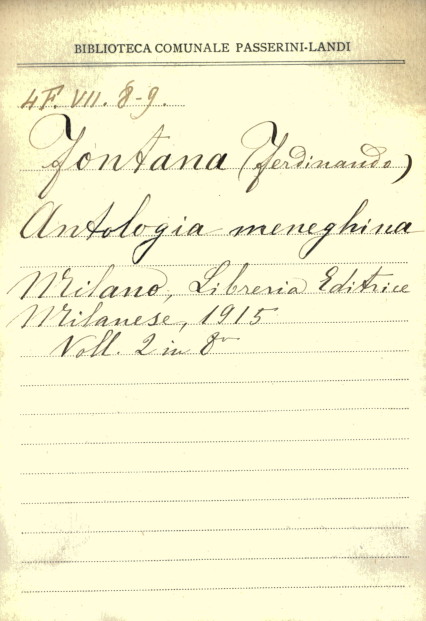 BIBLIOTECA COMUNALE PASSERINI-LANDI
4F. VII. 8-9.
Fontana (Ferdinando)
Antologia meneghina
Milano, Libreria Editrice
Milanese, 1915
Voll. 2 in 8º